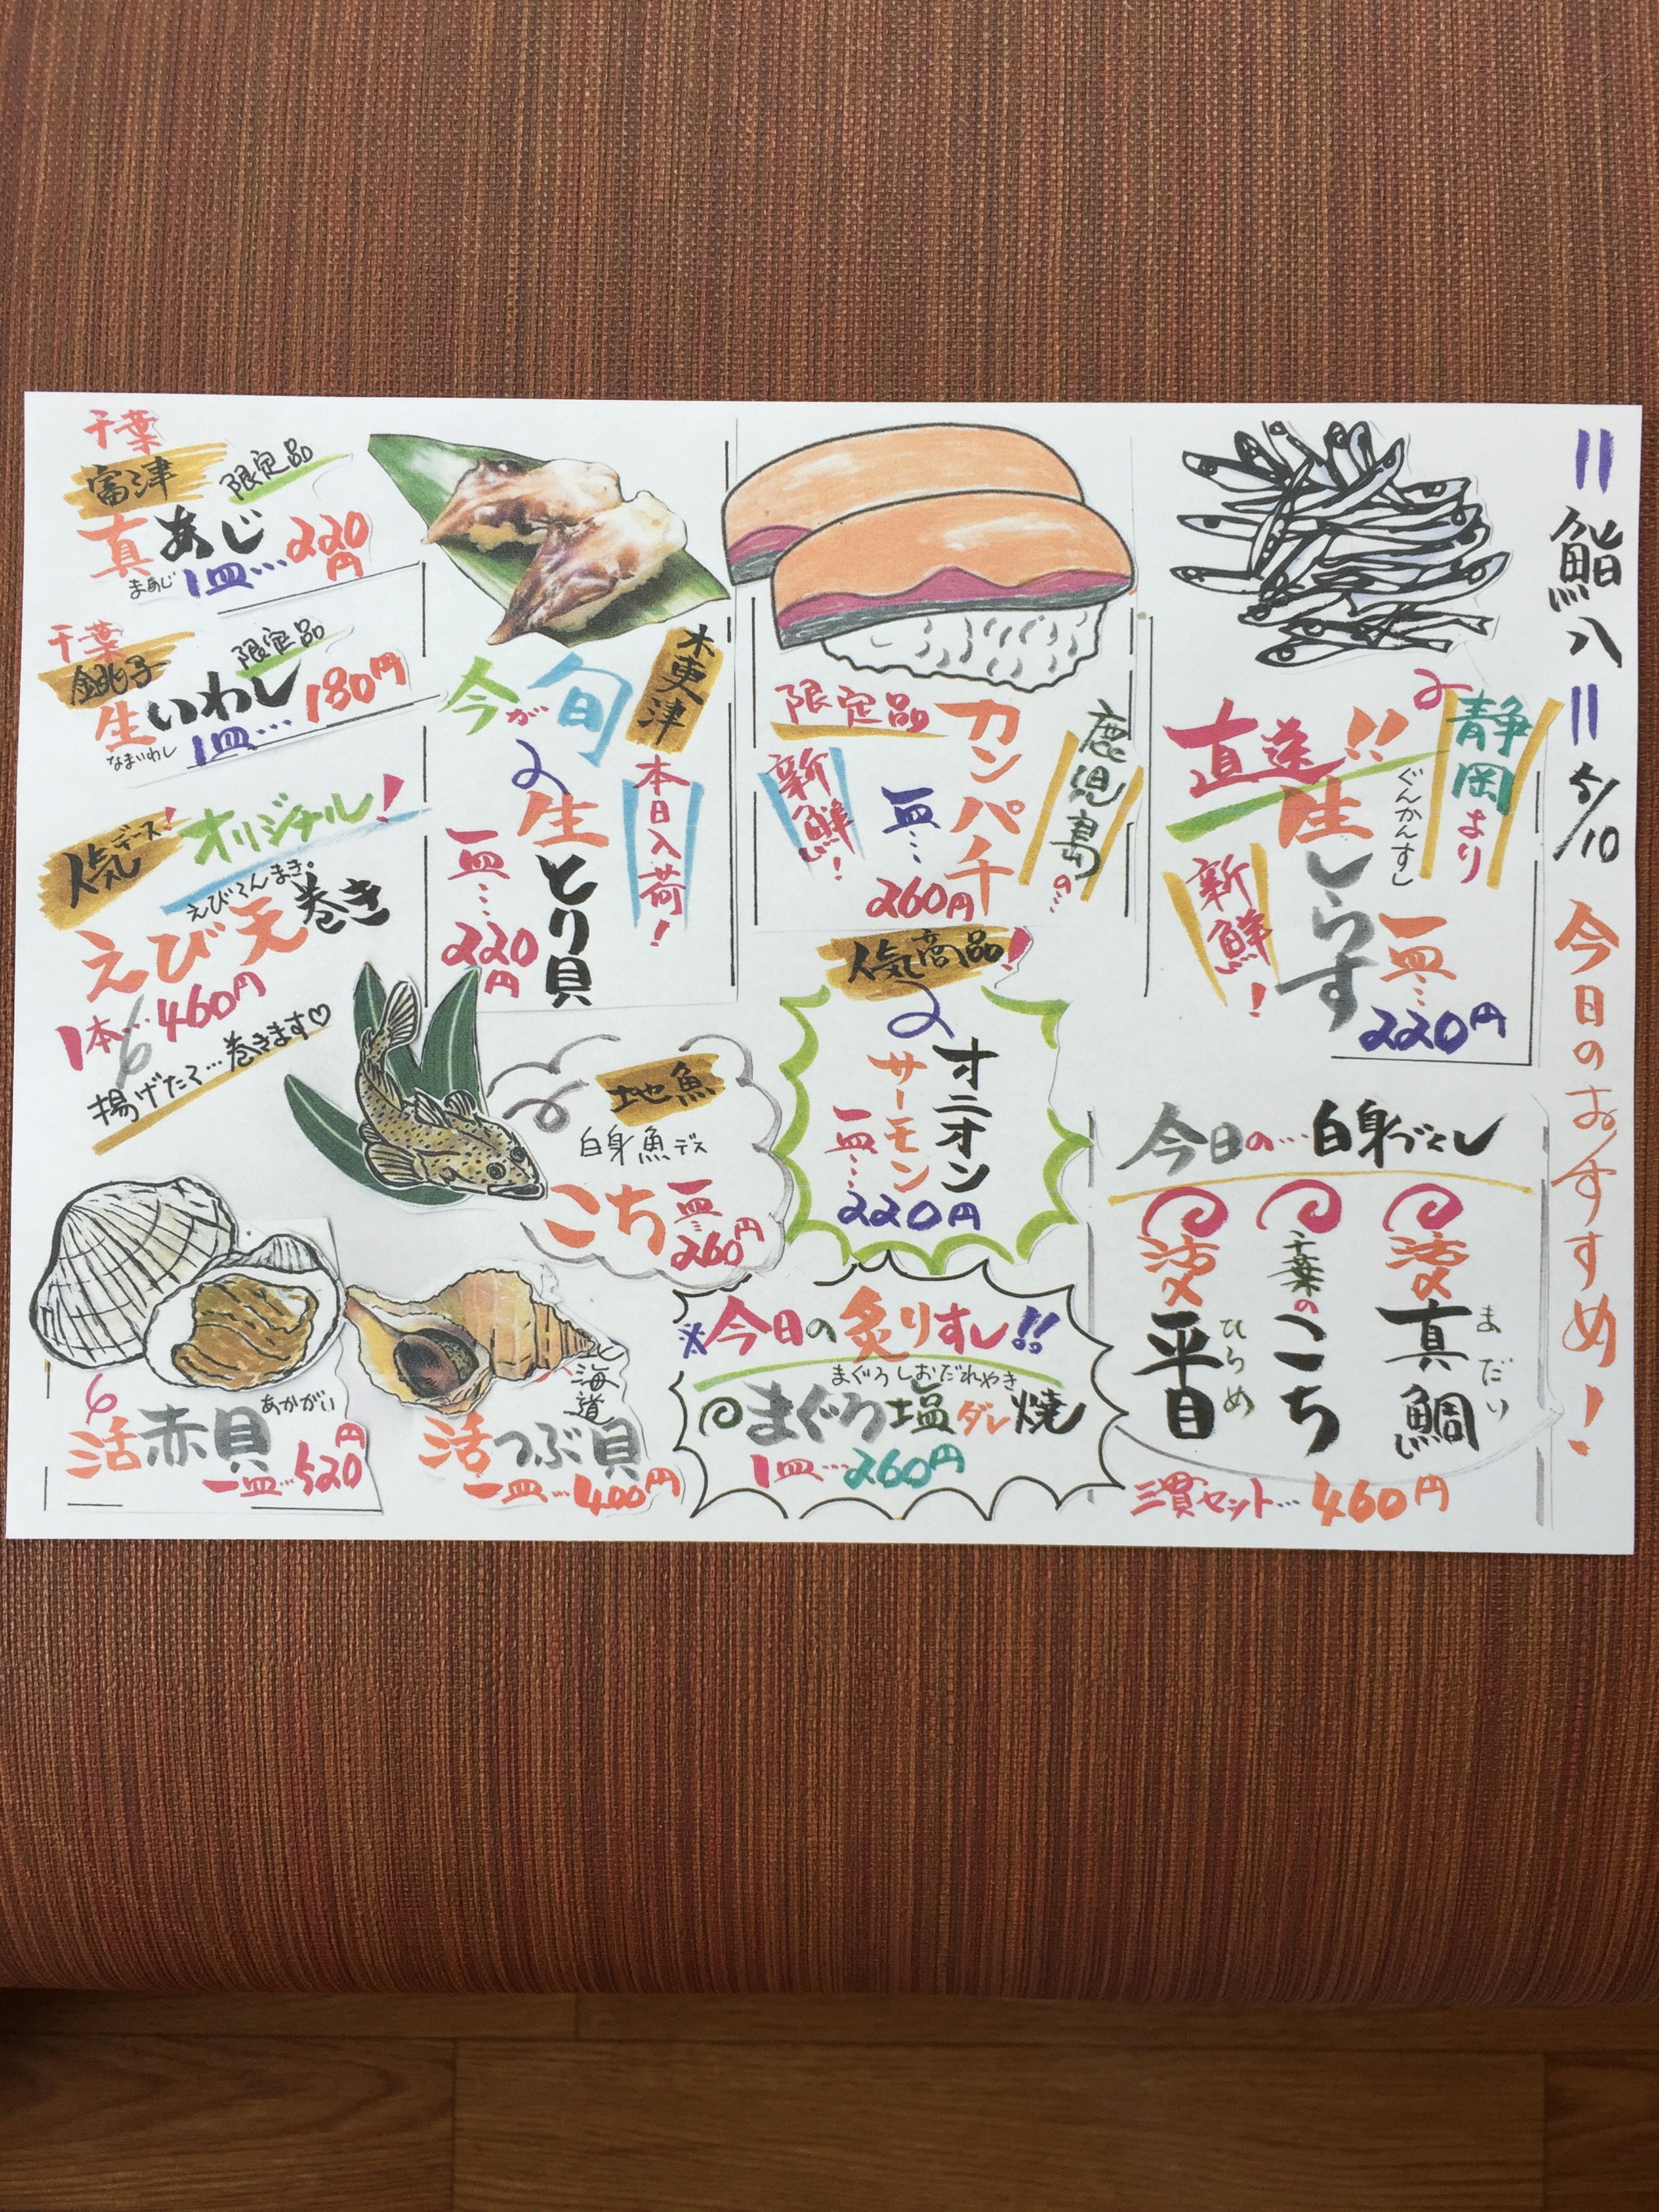 鮨八 5/10 今日のおすすめ！
静岡より
直送!!
生しらす
ぐんかんすし
新鮮！
一皿… 220円
今日の…白身づくし
活〆真鯛
まだい
千葉のこち
活〆平目
ひらめ
三貫セット…460円
鹿児島の…
カンパチ
限定品
新鮮！
一皿…
260円
人気商品！
オニオン
サーモン
一皿…
220円
※今日の炙りすし!!
まぐろしおだれやき
まぐろ塩ダレ焼
1皿…260円
木更津
今が旬
本日入荷！
生とり貝
一皿…
220円
地魚
白身魚デス
こち
一皿…
260円
千葉
富津
限定品
真あじ
まあじ
1皿…220円
千葉
銚子
限定品
生いわし
なまいわし
1皿…180円
人気デース！
オリジナル！
えびてんまき。
えび天巻き
1本…460円
揚げたて…巻きます♡
活赤貝
あかがい
一皿…520円
北海道
活つぶ貝
一皿…400円